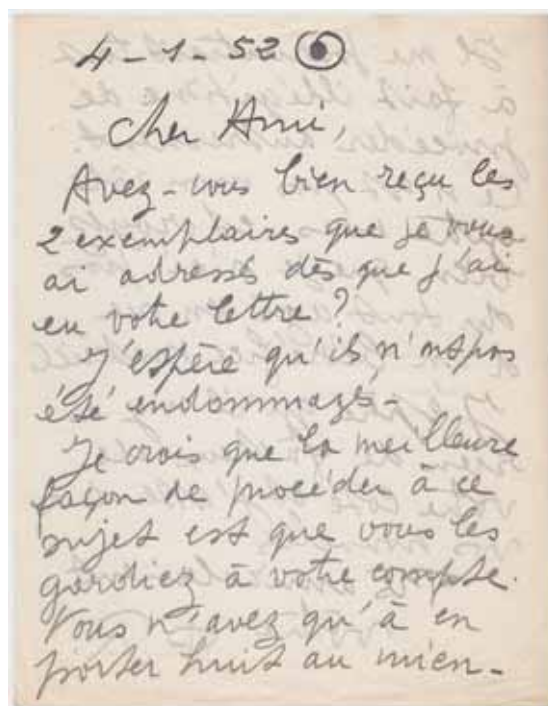 4-1-52 6
Cher Ami,
Avez-vous bien reçu les
2 exemplaires que je vous
ai adressés dès que j'ai
eu votre lettre ?
J'espère qu'ils n'ont pas
été endommagés-
Je crois que la meilleure
façon de procéder à ce
sujet est que vous les
gardiez à votre compte.
Vous n'avez qu'à en
porter huit au mien-